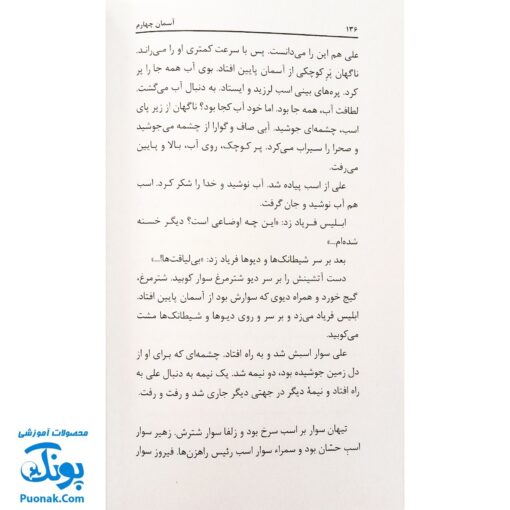 ۱۳۶
آسمان چهارم
علی هم این را می‌دانست. پس با سرعت کمتری او را می‌راند.
ناگهان پَر کوچکی از آسمان پایین افتاد. بوی آب همه جا را پر
کرد. پره‌های بینی اسب لرزید و ایستاد. به دنبال آب می‌گشت.
لطافت آب، همه جا بود. اما خود آب کجا بود؟ ناگهان از زیر پای
اسب، چشمه‌ای جوشید. آبی صاف و گوارا از چشمه می‌جوشید
و صحرا را سیراب می‌کرد. پر کوچک، روی آب، بالا و پایین
می‌رفت.
علی از اسب پیاده شد. آب نوشید و خدا را شکر کرد. اسب
هم آب نوشید و جان گرفت.
ابلیس فریاد زد: «این چه اوضاعی است؟ دیگر خسته
شده‌ام...»
بعد بر سر شیطانک‌ها و دیوها فریاد زد: «بی‌لیاقت‌ها!...»
دست آتشینش را بر سر دیو شترمرغ سوار کوبید. شترمرغ،
گیج خورد و همراه دیوی که سوارش بود از آسمان پایین افتاد.
ابلیس فریاد می‌زد و بر سر و روی دیوها و شیطانک‌ها مشت
می‌کوبید.
علی سوار اسبش شد و به راه افتاد. چشمه‌ای که برای او از
دل زمین جوشیده بود، دو نیمه شد. یک نیمه به دنبال علی به
راه افتاد و نیمهٔ دیگر در جهتی دیگر جاری شد و رفت و رفت.
تیهان سوار بر اسب سرخ بود و زلفا سوار شترش. زهیر سوار
اسب حسّان بود و سمراء سوار اسب رئیس راهزن‌ها. فیروز سوار
محصولات آموزشی
پونک
Puonak.Com